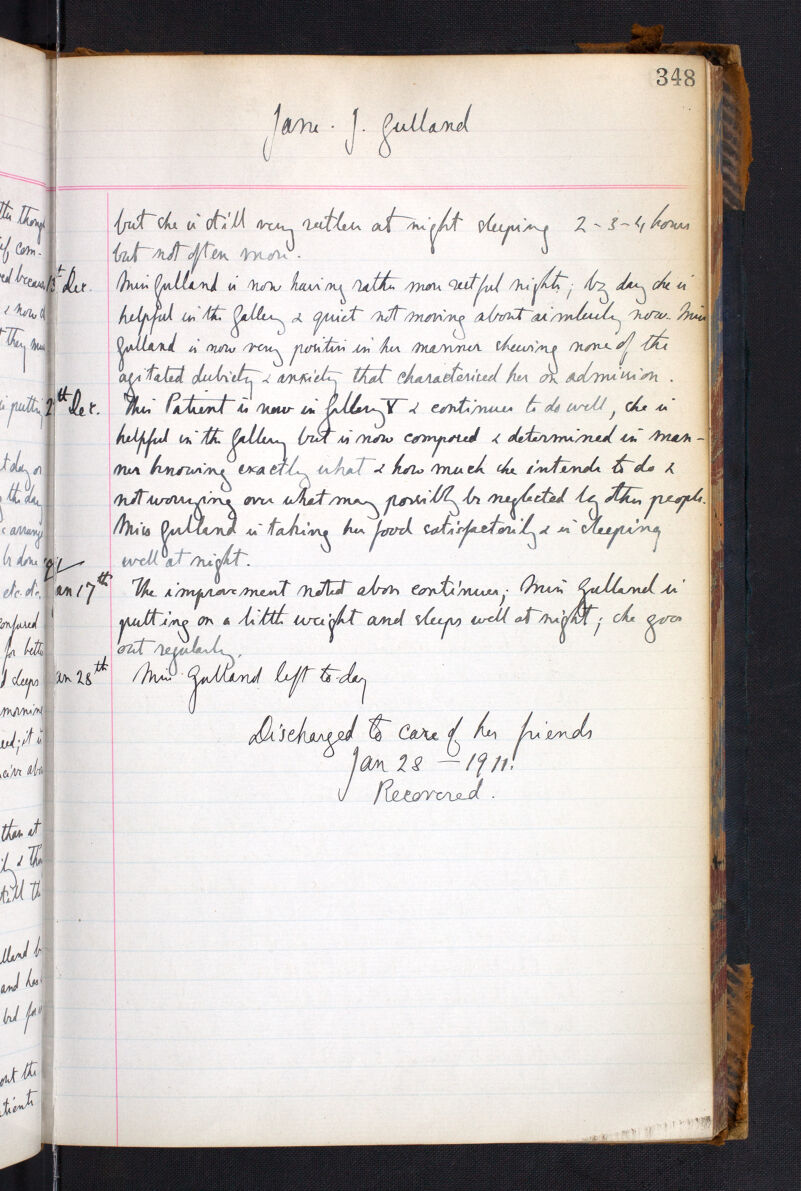 348
Jane. J. Gulland
but she is still very restless at night sleeping 2-3-4 hours
but not often more.
Dec. Miss Gulland is now having rather more restful nights; by day she is
helpful in the Gallery & quiet not moving about aimlessly now. Miss
Gulland is now very positive in her manner shewing none of the
agitated dubiety & anxiety that characterised her on admission.
Dec. This Patient is now in Gallery & continues to do well, she is
helpful in the Gallery but is now composed & determined in man-
ner knowing exactly what & how much she intends to do &
not worrying over what may possibly be neglected by other people.
Miss Gulland is taking her food satisfactorily & is sleeping
well at night.
an 17th The improvement noted above continues; Miss Gulland is
putting on a little weight and sleeps well at night; she goes
out regularly.
an 28th Miss Gulland left to-day
Discharged to care of her friends
Jan 28 - 1911.
Recovered.